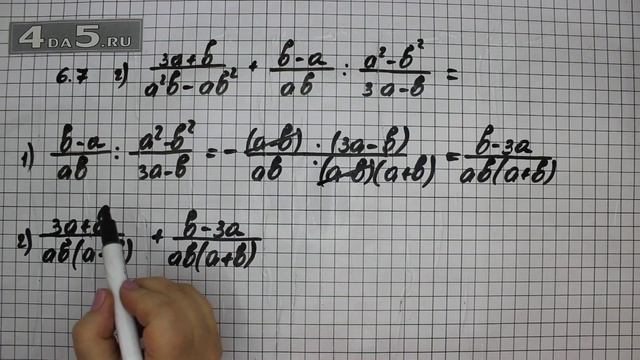 4DA5.RU
6.7 г) (3a+b)/(a²b-ab²) + (b-a)/(ab) : (a²-b²)/(3a-b) =
1) (b-a)/(ab) : (a²-b²)/(3a-b) = -((a-b)·(3a-b))/(ab·(a-b)(a+b)) = (b-3a)/(ab(a+b))
2) + (b-3a)/(ab(a+b))